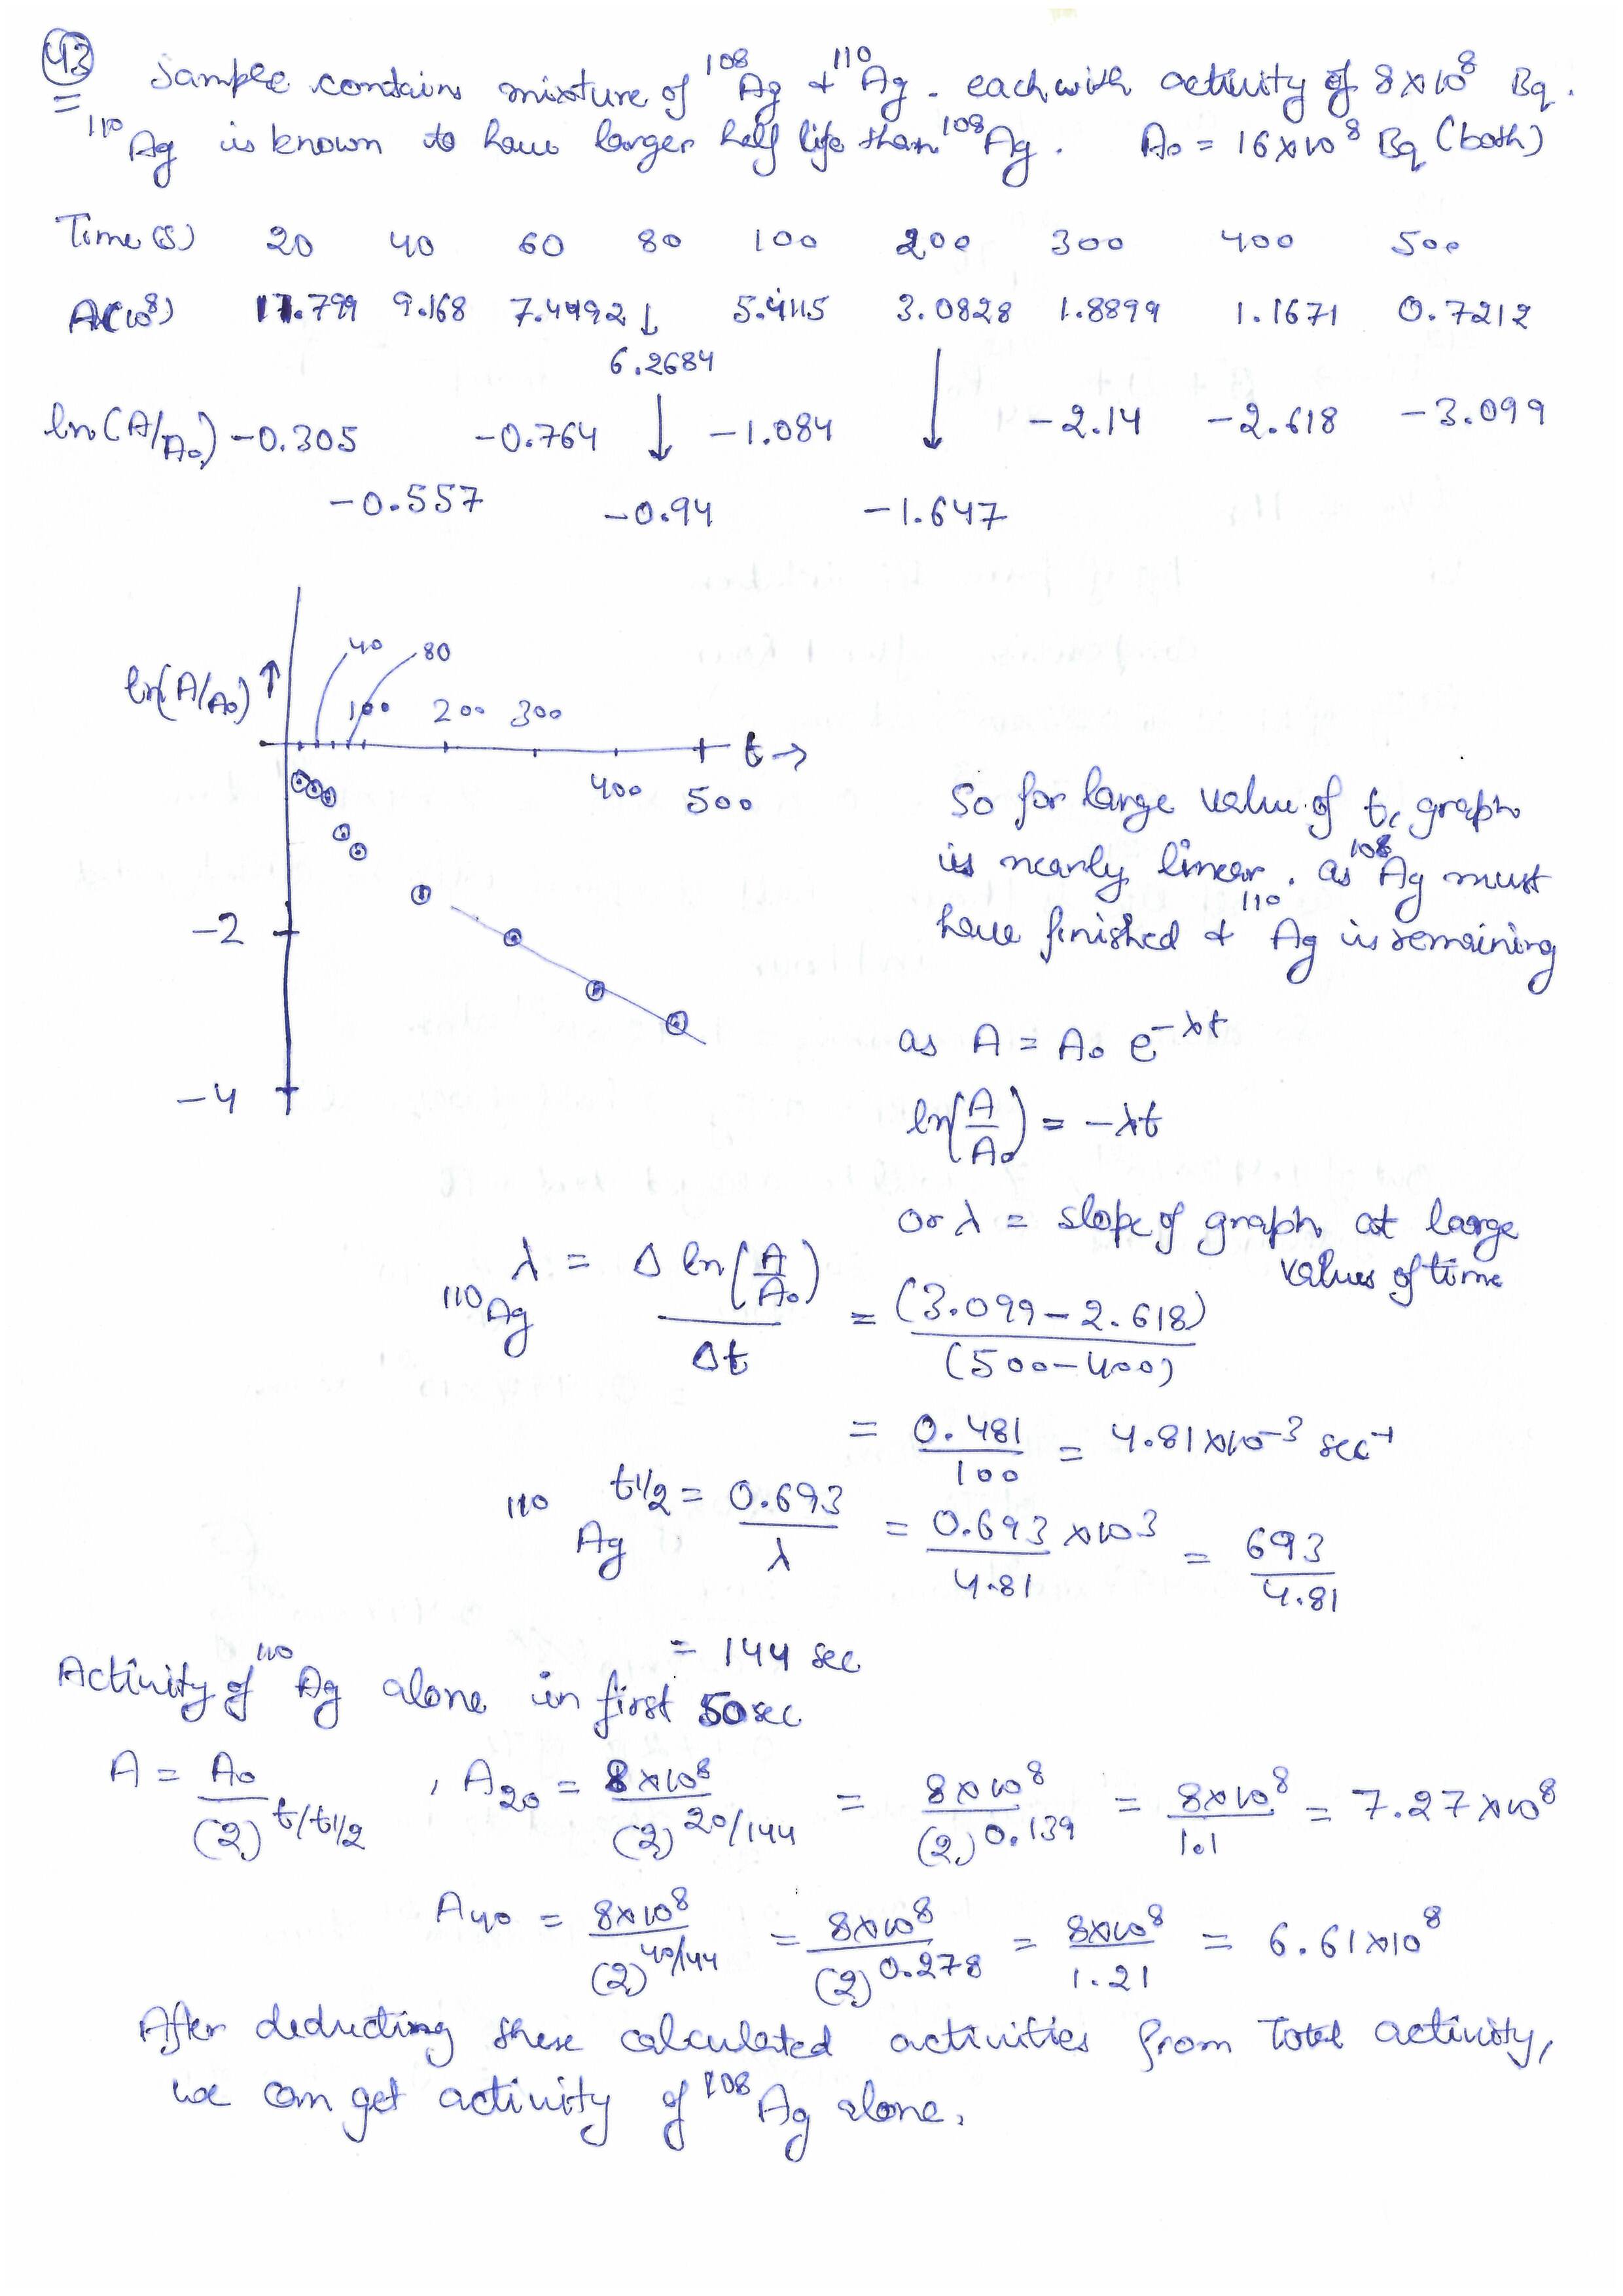 43 Sample contains mixture of ¹⁰⁸Ag & ¹¹⁰Ag. each with activity of 8×10⁸ Bq.
¹¹⁰Ag is known to have larger half life than ¹⁰⁸Ag. A₀ = 16×10⁸ Bq (both)
Time (s) 20 40 60 80 100 200 300 400 500
A(10⁸) 11.799 9.168 7.4492 ↓ 5.4115 3.0828 1.8899 1.1671 0.7212
6.2684
ln(A/A₀) -0.305 -0.764 -1.084 -2.14 -2.618 -3.099
-0.557 -0.94 -1.647
40 80
ln(A/A₀) ↑ 100 200 300
t →
400 500
-2
-4
So for large value of t, graph
is nearly linear. as ¹⁰⁸Ag must
have finished & ¹¹⁰Ag is remaining
as A = A₀ e^-λt
ln(A/A₀) = -λt
or λ = slope of graph at large
values of time
¹¹⁰Ag λ = Δ ln(A/A₀) / Δt = (3.099-2.618) / (500-400)
= 0.481/100 = 4.81×10⁻³ sec⁻¹
¹¹⁰Ag t1/2 = 0.693/λ = 0.693/4.81 ×10³ = 693/4.81
= 144 sec
Activity of ¹¹⁰Ag alone in first 50sec
A = A₀/(2)^t/t1/2 , A₂₀ = 8×10⁸/(2)^20/144 = 8×10⁸/(2)^0.139 = 8×10⁸/1.1 = 7.27×10⁸
A₄₀ = 8×10⁸/(2)^40/144 = 8×10⁸/(2)^0.278 = 8×10⁸/1.21 = 6.61×10⁸
After deducting these calculated activities from Total activity,
we can get activity of ¹⁰⁸Ag alone.